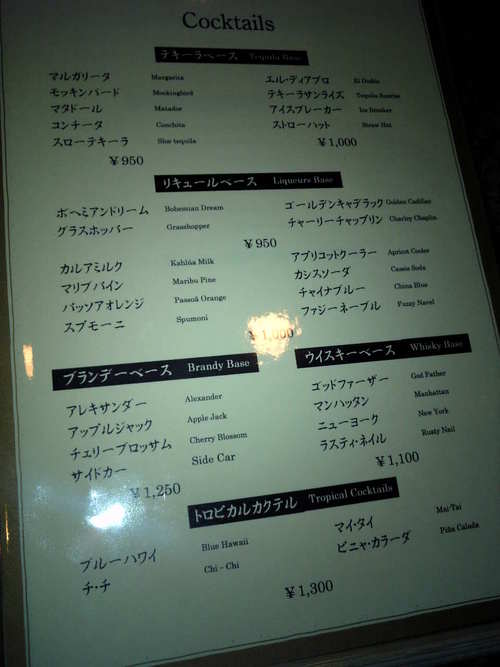 Cocktails
テキーラベース Tequila Base
マルガリータ Margarita
モッキンバード Mockingbird
マタドール Matador
コンチータ Conchita
スローテキーラ Sloe tequila
¥950
エル・ディアブロ El Diablo
テキーラサンライズ Tequila Sunrise
アイスブレーカー Ice Breaker
ストローハット Straw Hat
¥1,000
リキュールベース Liqueurs Base
ボヘミアンドリーム Bohemian Dream
グラスホッパー Grasshopper
ゴールデンキャデラック Golden Cadillac
チャーリーチャップリン Charley Chaplin
¥950
カルアミルク Kahlúa Milk
マリブパイン Maribu Pine
パッソアオレンジ Passoã Orange
スプモーニ Spumoni
アプリコットクーラー Apricot Cooler
カシスソーダ Cassis Soda
チャイナブルー China Blue
ファジーネーブル Fuzzy Navel
¥1,000
ブランデーベース Brandy Base
アレキサンダー Alexander
アップルジャック Apple Jack
チェリーブロッサム Cherry Blossom
サイドカー Side Car
¥1,250
ウイスキーベース Whisky Base
ゴッドファーザー God Father
マンハッタン Manhattan
ニューヨーク New York
ラスティ・ネイル Rusty Nail
¥1,100
トロピカルカクテル Tropical Cocktails
ブルーハワイ Blue Hawaii
チ・チ Chi - Chi
マイ・タイ Mai-Tai
ピニャ・カラーダ Piña Calada
¥1,300